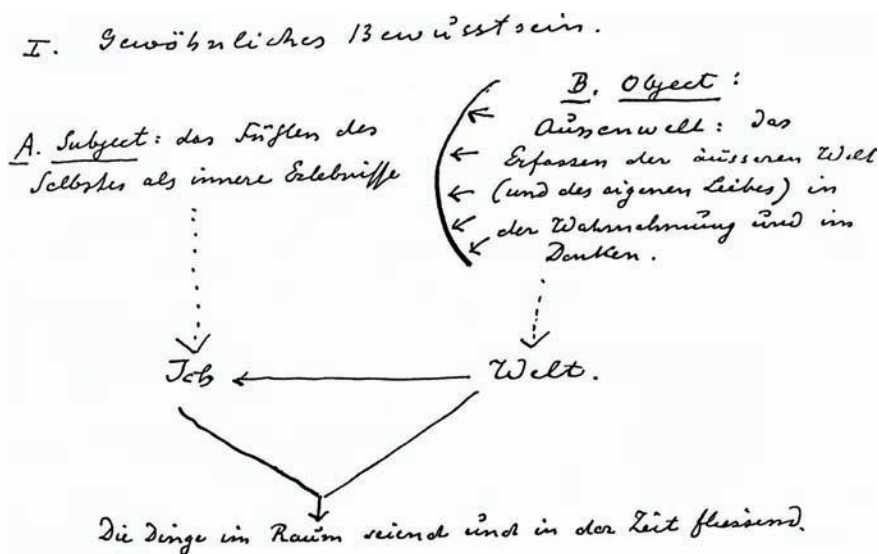 I. Gewöhnliches Bewusstsein.
A. Subject: das Fühlen des
Selbstes als innere Erlebnisse
B. Object:
Aussenwelt: das
Erfassen der äusseren Welt
(und des eigenen Leibes) in
der Wahrnehmung und im
Denken.
Ich
Welt.
Die Dinge im Raum seiend und in der Zeit fliessend.